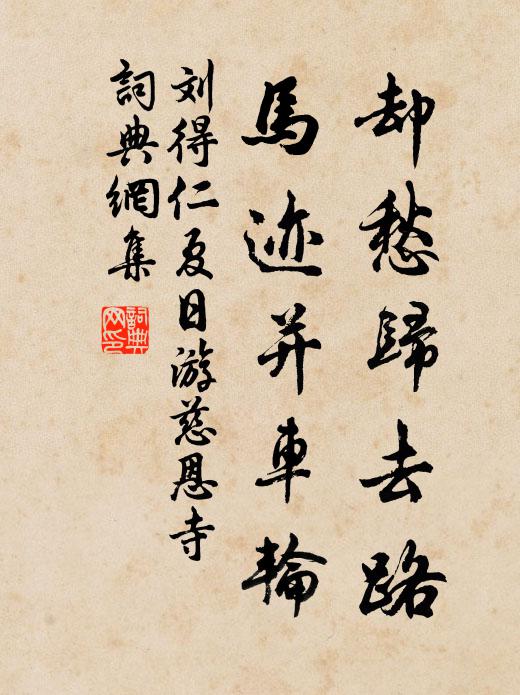 却愁歸去路
馬迹并車輪
刘得仁夏日游慈恩寺
詞典網集
詞典网印